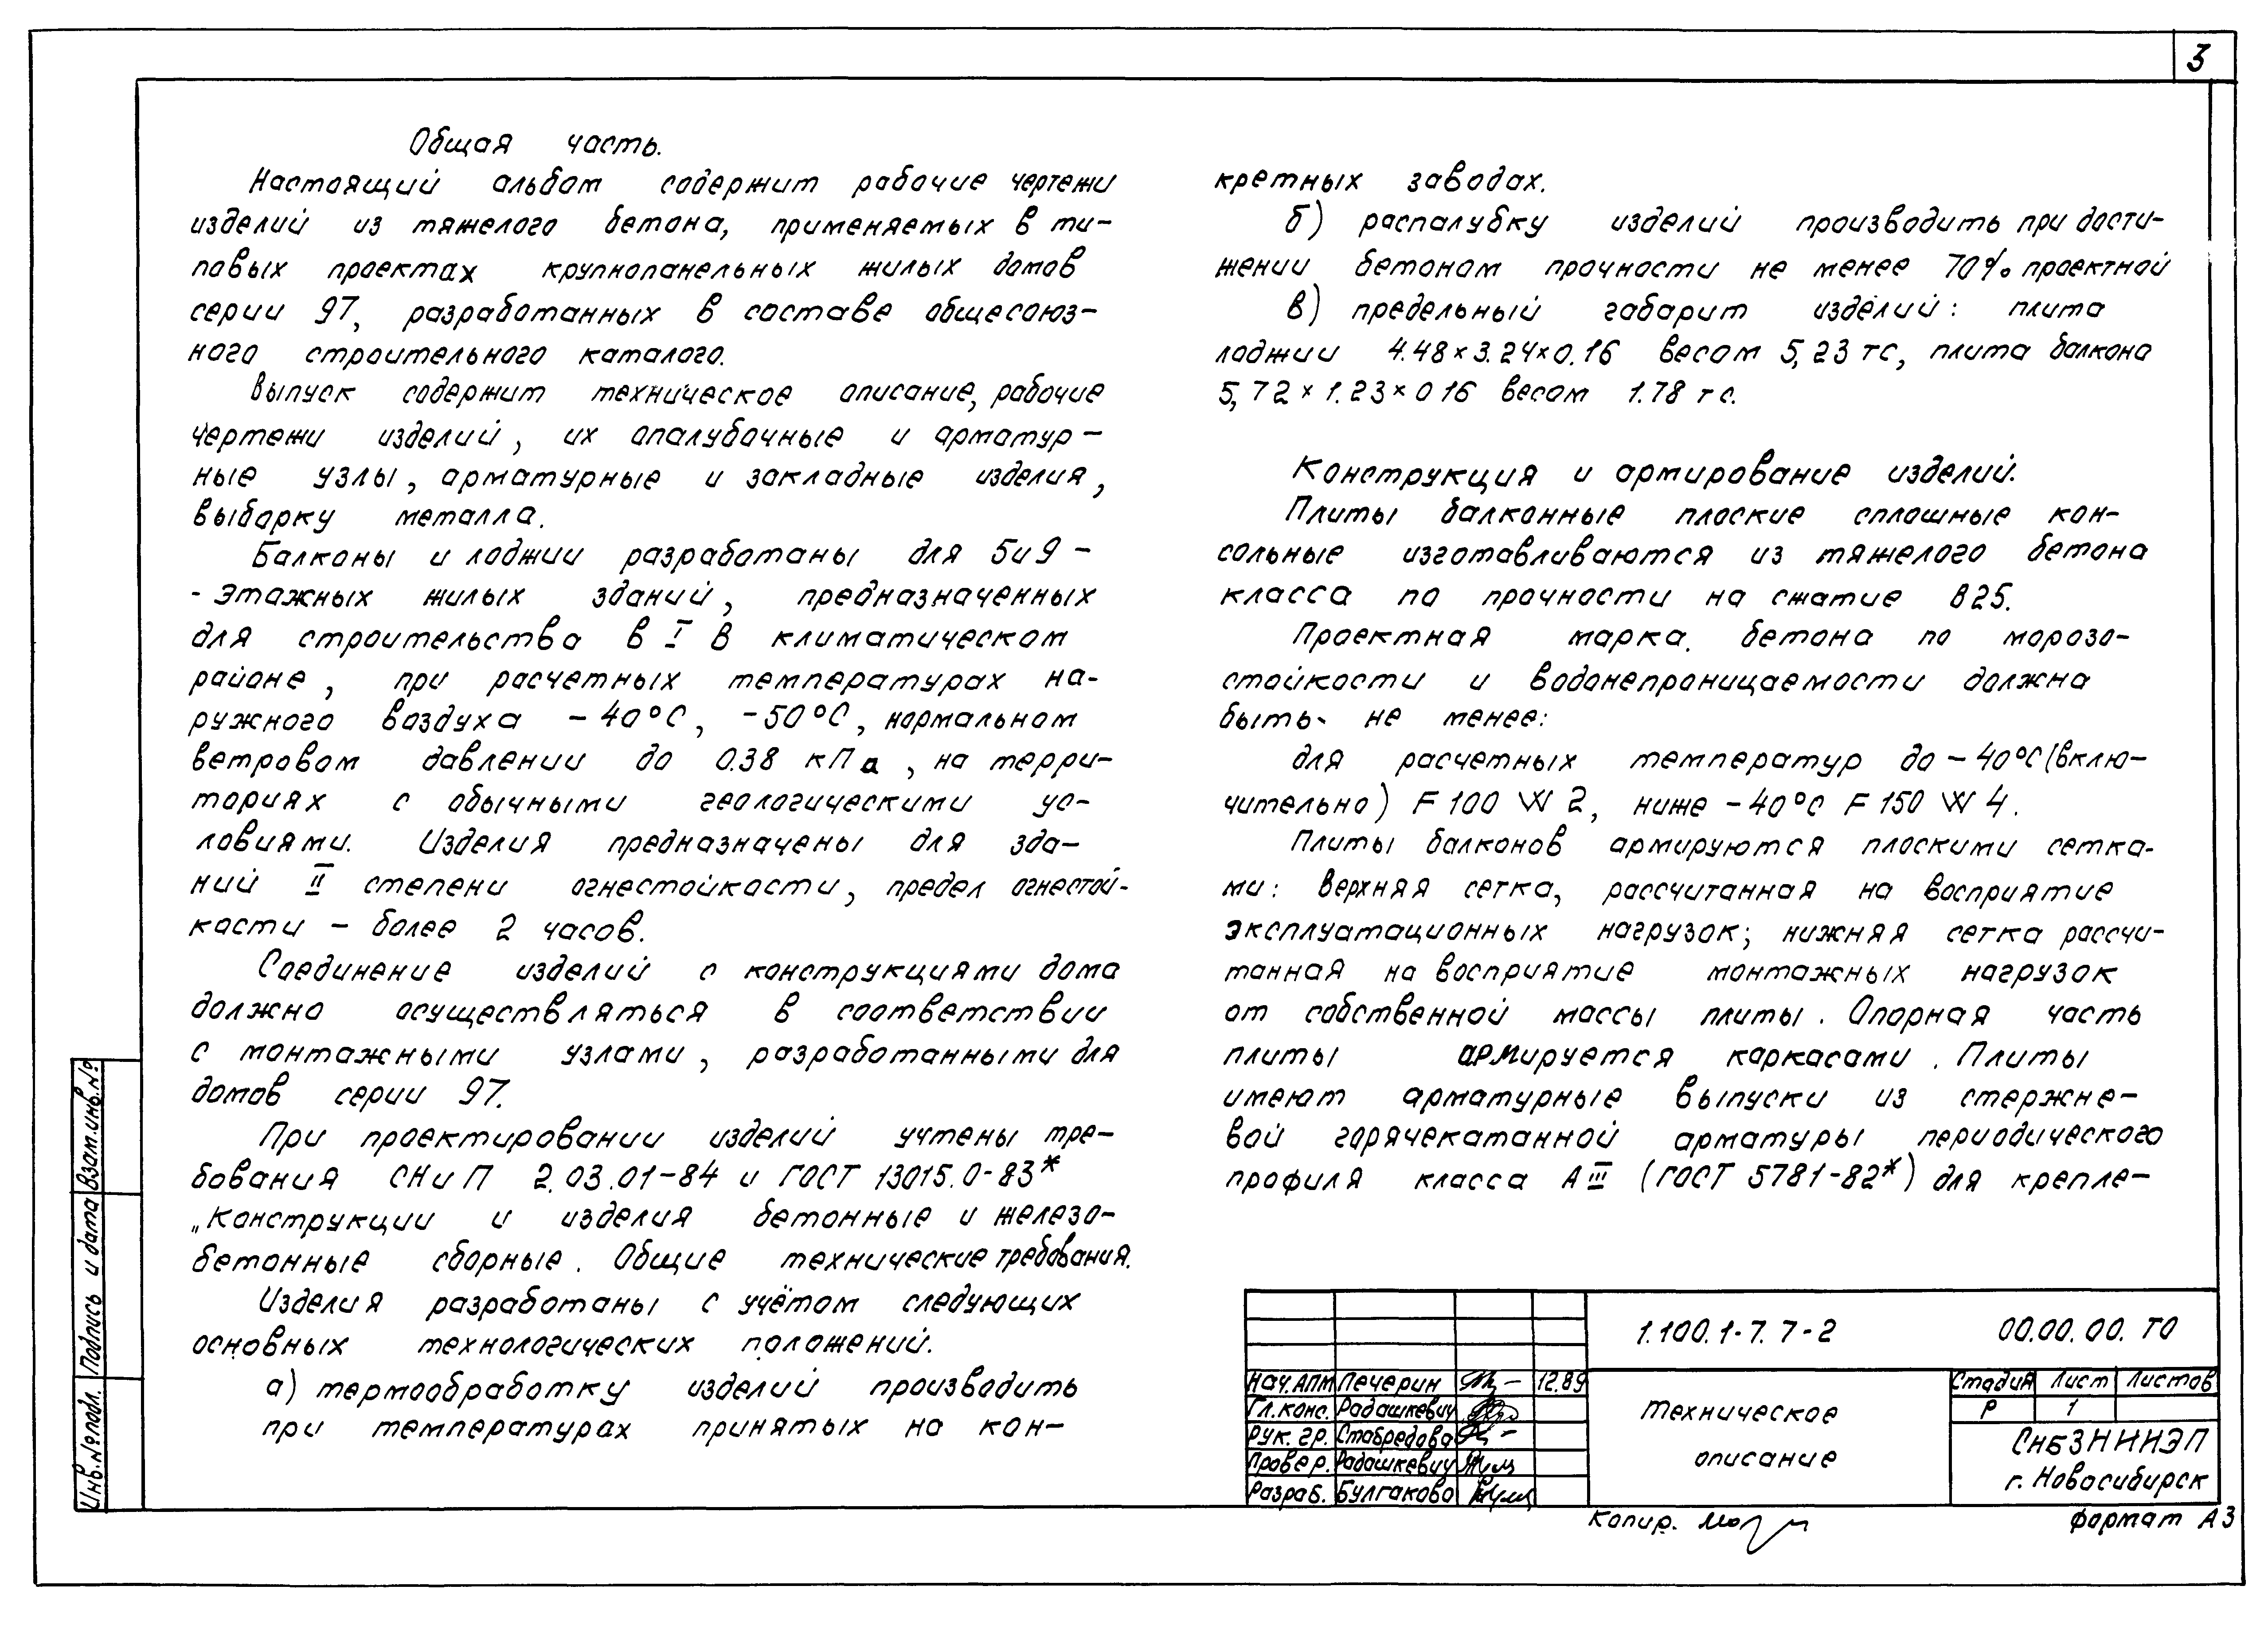 3
Общая часть.
Настоящий альбом содержит рабочие чертежи
изделий из тяжелого бетона, применяемых в ти-
повых проектах крупнопанельных жилых домов
серии 97, разработанных в составе общесоюз-
ного строительного каталога.
Выпуск содержит техническое описание, рабочие
чертежи изделий, их опалубочные и арматур-
ные узлы, арматурные и закладные изделия,
выборку металла.
Балконы и лоджии разработаны для 5 и 9 -
- этажных жилых зданий, предназначенных
для строительства в I В климатическом
районе, при расчетных температурах на-
ружного воздуха -40°С, -50°С, нормальном
ветровом давлении до 0.38 кПа, на терри-
ториях с обычными геологическими ус-
ловиями. Изделия предназначены для зда-
ний II степени огнестойкости, предел огнестой-
кости - более 2 часов.
Соединение изделий с конструкциями дома
должно осуществляться в соответствии
с монтажными узлами, разработанными для
домов серии 97.
При проектировании изделий учтены тре-
бования СНиП 2.03.01-84 и ГОСТ 13015.0-83*
„Конструкции и изделия бетонные и железо-
бетонные сборные. Общие технические требования.
Изделия разработаны с учётом следующих
основных технологических положений.
а) термообработку изделий производить
при температурах принятых на кон-
кретных заводах.
б) распалубку изделий производить при дости-
жении бетоном прочности не менее 70% проектной
в) предельный габарит изделий: плита
лоджии 4.48×3.24×0.16 весом 5,23 тс, плита балкона
5,72×1.23×0 16 весом 1.78 тс.
Конструкция и армирование изделий.
Плиты балконные плоские сплошные кон-
сольные изготавливаются из тяжелого бетона
класса по прочности на сжатие В25.
Проектная марка. бетона по морозо-
стойкости и водонепроницаемости должна
быть не менее:
для расчетных температур до -40°С (вклю-
чительно) F 100 W 2, ниже -40°С F 150 W 4.
Плиты балконов армируются плоскими сетка-
ми: верхняя сетка, рассчитанная на восприятие
эксплуатационных нагрузок; нижняя сетка рассчи-
танная на восприятие монтажных нагрузок
от собственной массы плиты. Опорная часть
плиты армируется каркасами. Плиты
имеют арматурные выпуски из стержне-
вой горячекатанной арматуры периодического
профиля класса А III (ГОСТ 5781-82*) для крепле-
Инв.№подл. Подпись и дата Взам.инв.№
1.100.1-7.7-2 00.00.00. ТО
Нач.АПМ Печерин 12.89
Гл.конс. Радашкевич
Рук. гр. Стабредова
Провер. Радашкевич
Разраб. Булгакова
Техническое
описание
Стадия Лист Листов
Р 1
СибЗНИИЭП
г. Новосибирск
Копир.
формат А3